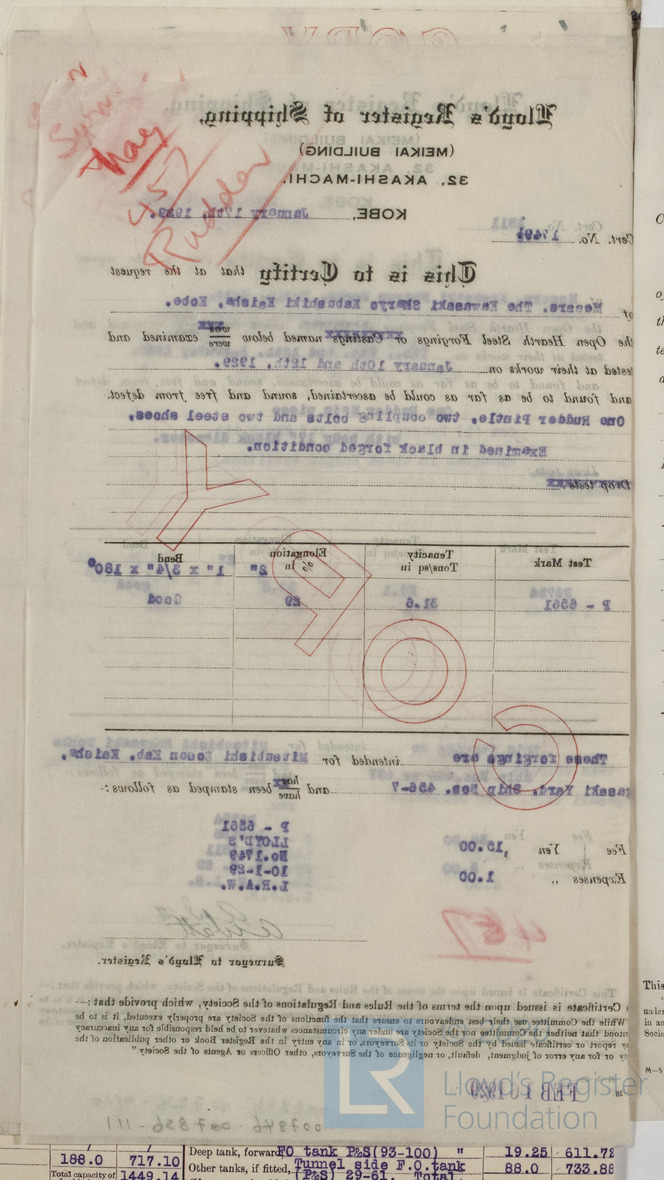 Lloyd's Register of Shipping,
(MEIKAI BUILDING)
32, AKASHI-MACHI.
KOBE, January 17th, 1929.
Cert. No. 1749
457
Rudder
This is to Certify that at the request
of Messrs. The Kawasaki Sharyo Kabushiki Kaisha, Kobe.
the Open Hearth Steel Forgings or Castings named below was were examined and
tested at their works on January 10th and 12th, 1929.
and found to be as far as could be ascertained, sound and free from defect.
One Rudder Pintle, two coupling bolts and two steel shoes.
Examined in black forged condition.
Drop tests
Test Mark Tenacity Tons/sq in Elongation % in 2" Bend 1" x 3/4" x 180°
P - 6561 31.6 29 Good
COPY
These forgings are intended for Mitsubishi Zosen Kab. Kaisha,
Nagasaki Yard. Ship Nos. 456-7 and has have been stamped as follows:-
P - 6561
LLOYD'S
No.1749
10-1-29
L.R.A.W.
Fee Yen 15.00
Expenses „ 1.00
457
Surveyor to Lloyd's Register.
Certificate is issued upon the terms of the Rules and Regulations of the Society, which provide that:—
"While the Committee use their best endeavours to ensure that the functions of the Society are properly executed, it is to be
understood that neither the Committee nor the Society are under any circumstances whatever to be held responsible for any inaccuracy
in any report or certificate issued by the Society or its Surveyors, or in any entry in the Register Book or other publication of the
Society or for any error of judgment, default, or negligence of the Surveyors, other Officers or Agents of the Society"
FEB 1929
007846-007856-111
LR
Lloyd's Register
Foundation
This
M-5
188.0 717.10 Deep tank, forward, FO tank P&S(93-100) " 19.25 611.72
Total capacity of 1449.14 Other tanks, if fitted, Tunnel side F.O.tank 88.0 733.88
(P&S) 29-61. Total